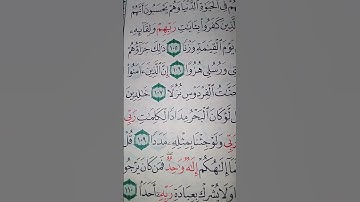 هُمْ فِي ٱلْحَيَوٰةِ ٱلدُّنْيَا وَهُمْ يَحْسَبُونَ أَنَّهُمْ
ٱلَّذِينَ كَفَرُوا۟ بِـَٔايَـٰتِ رَبِّهِمْ وَلِقَآئِهِۦ
يَوْمَ ٱلْقِيَـٰمَةِ وَزْنًا ١٠٥ ذَٰلِكَ جَزَآؤُهُمْ
ى وَرُسُلِى هُزُوًا ١٠٦ إِنَّ ٱلَّذِينَ ءَامَنُوا۟
جَنَّـٰتُ ٱلْفِرْدَوْسِ نُزُلًا ١٠٧ خَـٰلِدِينَ
لَّوْ كَانَ ٱلْبَحْرُ مِدَادًا لِّكَلِمَـٰتِ رَبِّى
رَبِّى وَلَوْ جِئْنَا بِمِثْلِهِۦ مَدَدًا ١٠٩ قُلْ
مَآ إِلَـٰهُكُمْ إِلَـٰهٌ وَٰحِدٌ فَمَن كَانَ يَرْجُوا۟
وَلَا يُشْرِكْ بِعِبَادَةِ رَبِّهِۦٓ أَحَدًۢا ١١٠